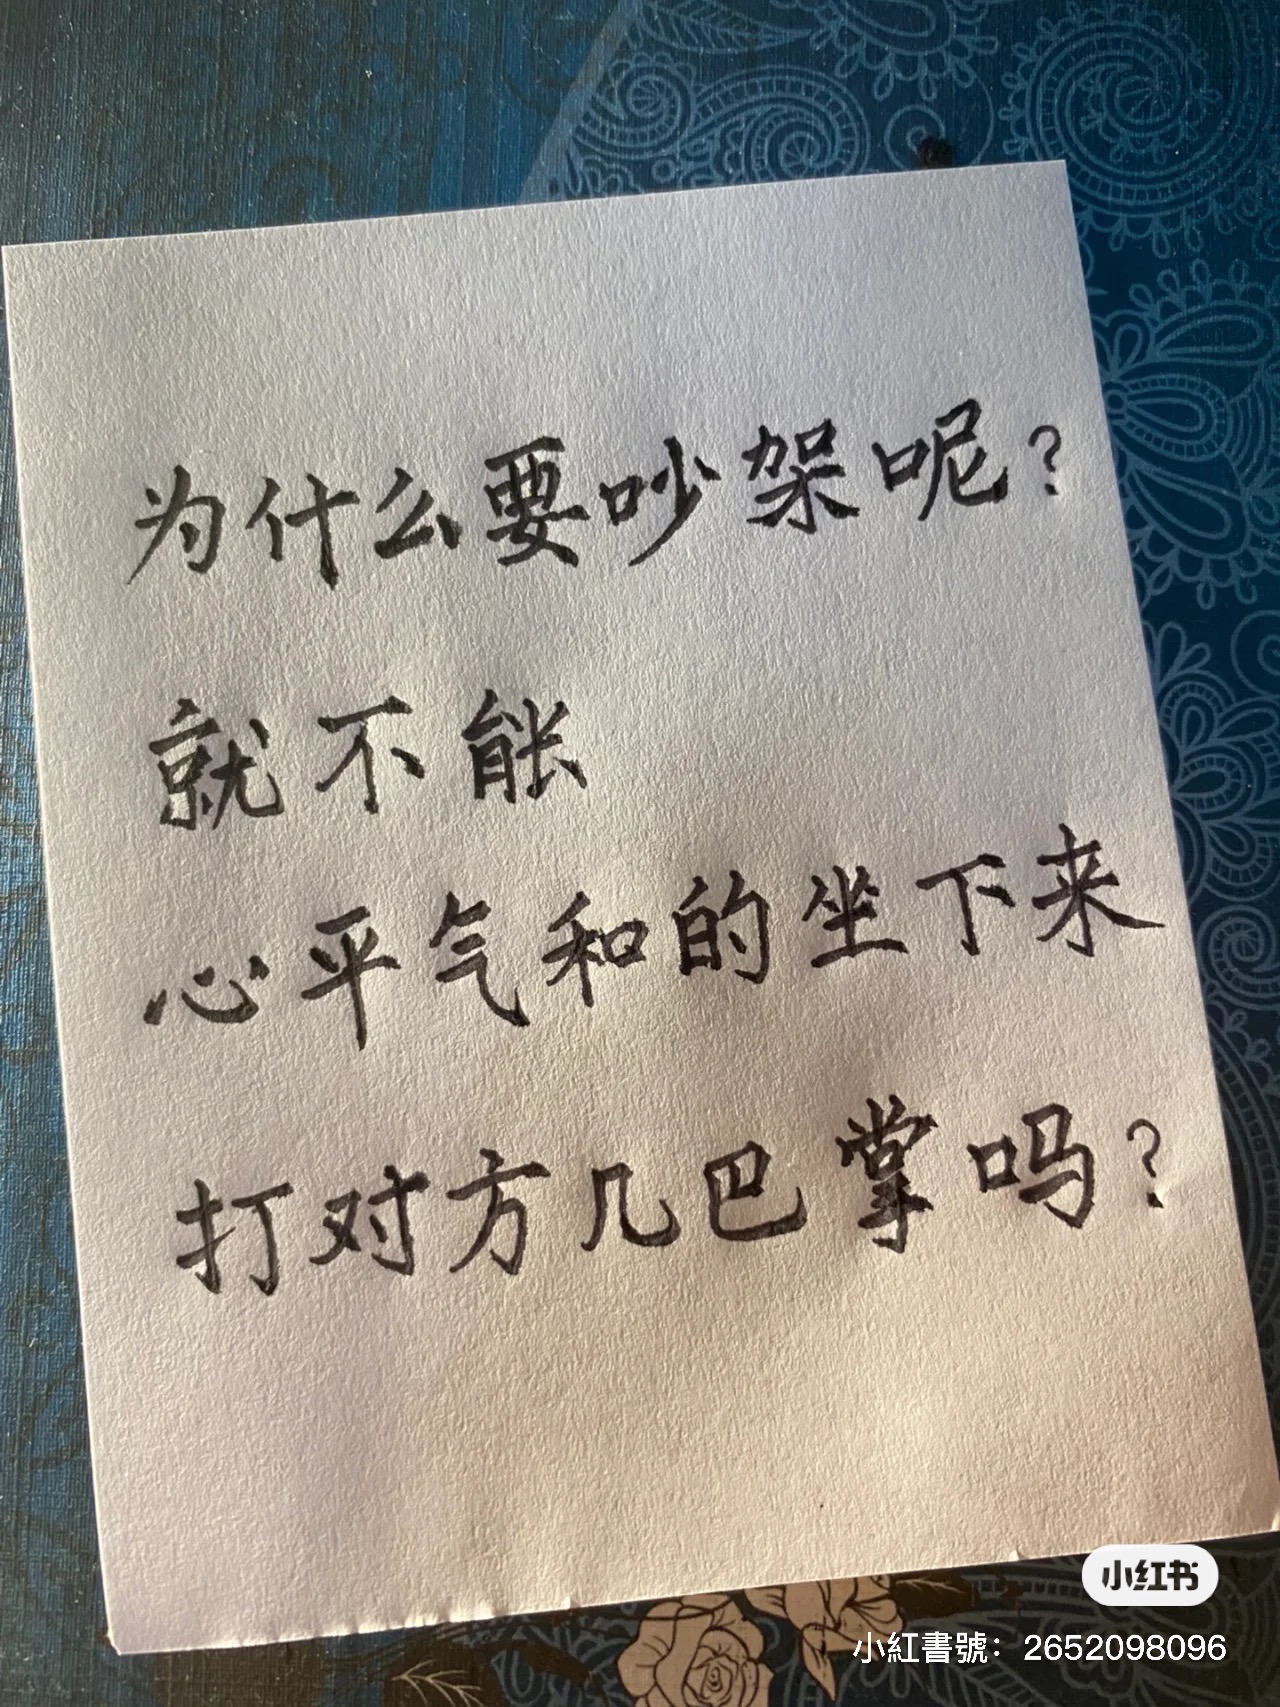 为什么要吵架呢？
就不能
心平气和的坐下来
打对方几巴掌吗？
小红书
小紅書號：2652098096